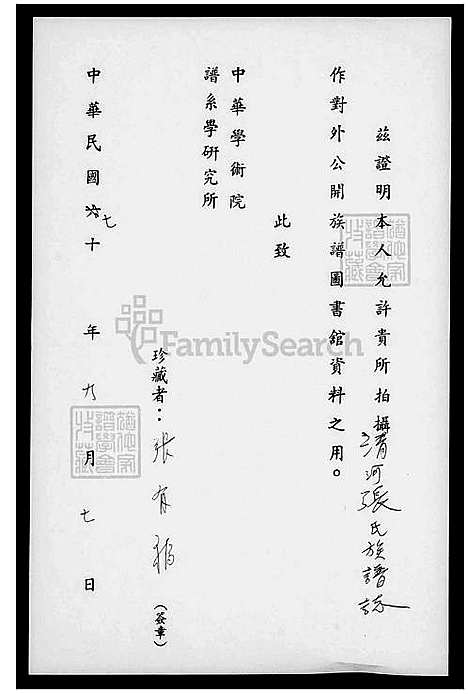 茲證明本人允許貴所拍攝清河張氏族譜
作對外公開族譜圖書館資料之用。
此致
中華學術院
譜系學研究所
珍藏者：張有福（簽章）
中華民國六七十年九月七日
FamilySearch